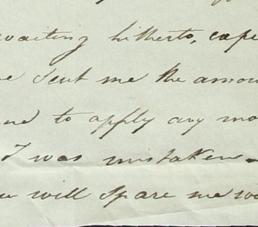 waiting hitherto, expe
sent me the amou
to apply any mo
I was mistaken
will spare me